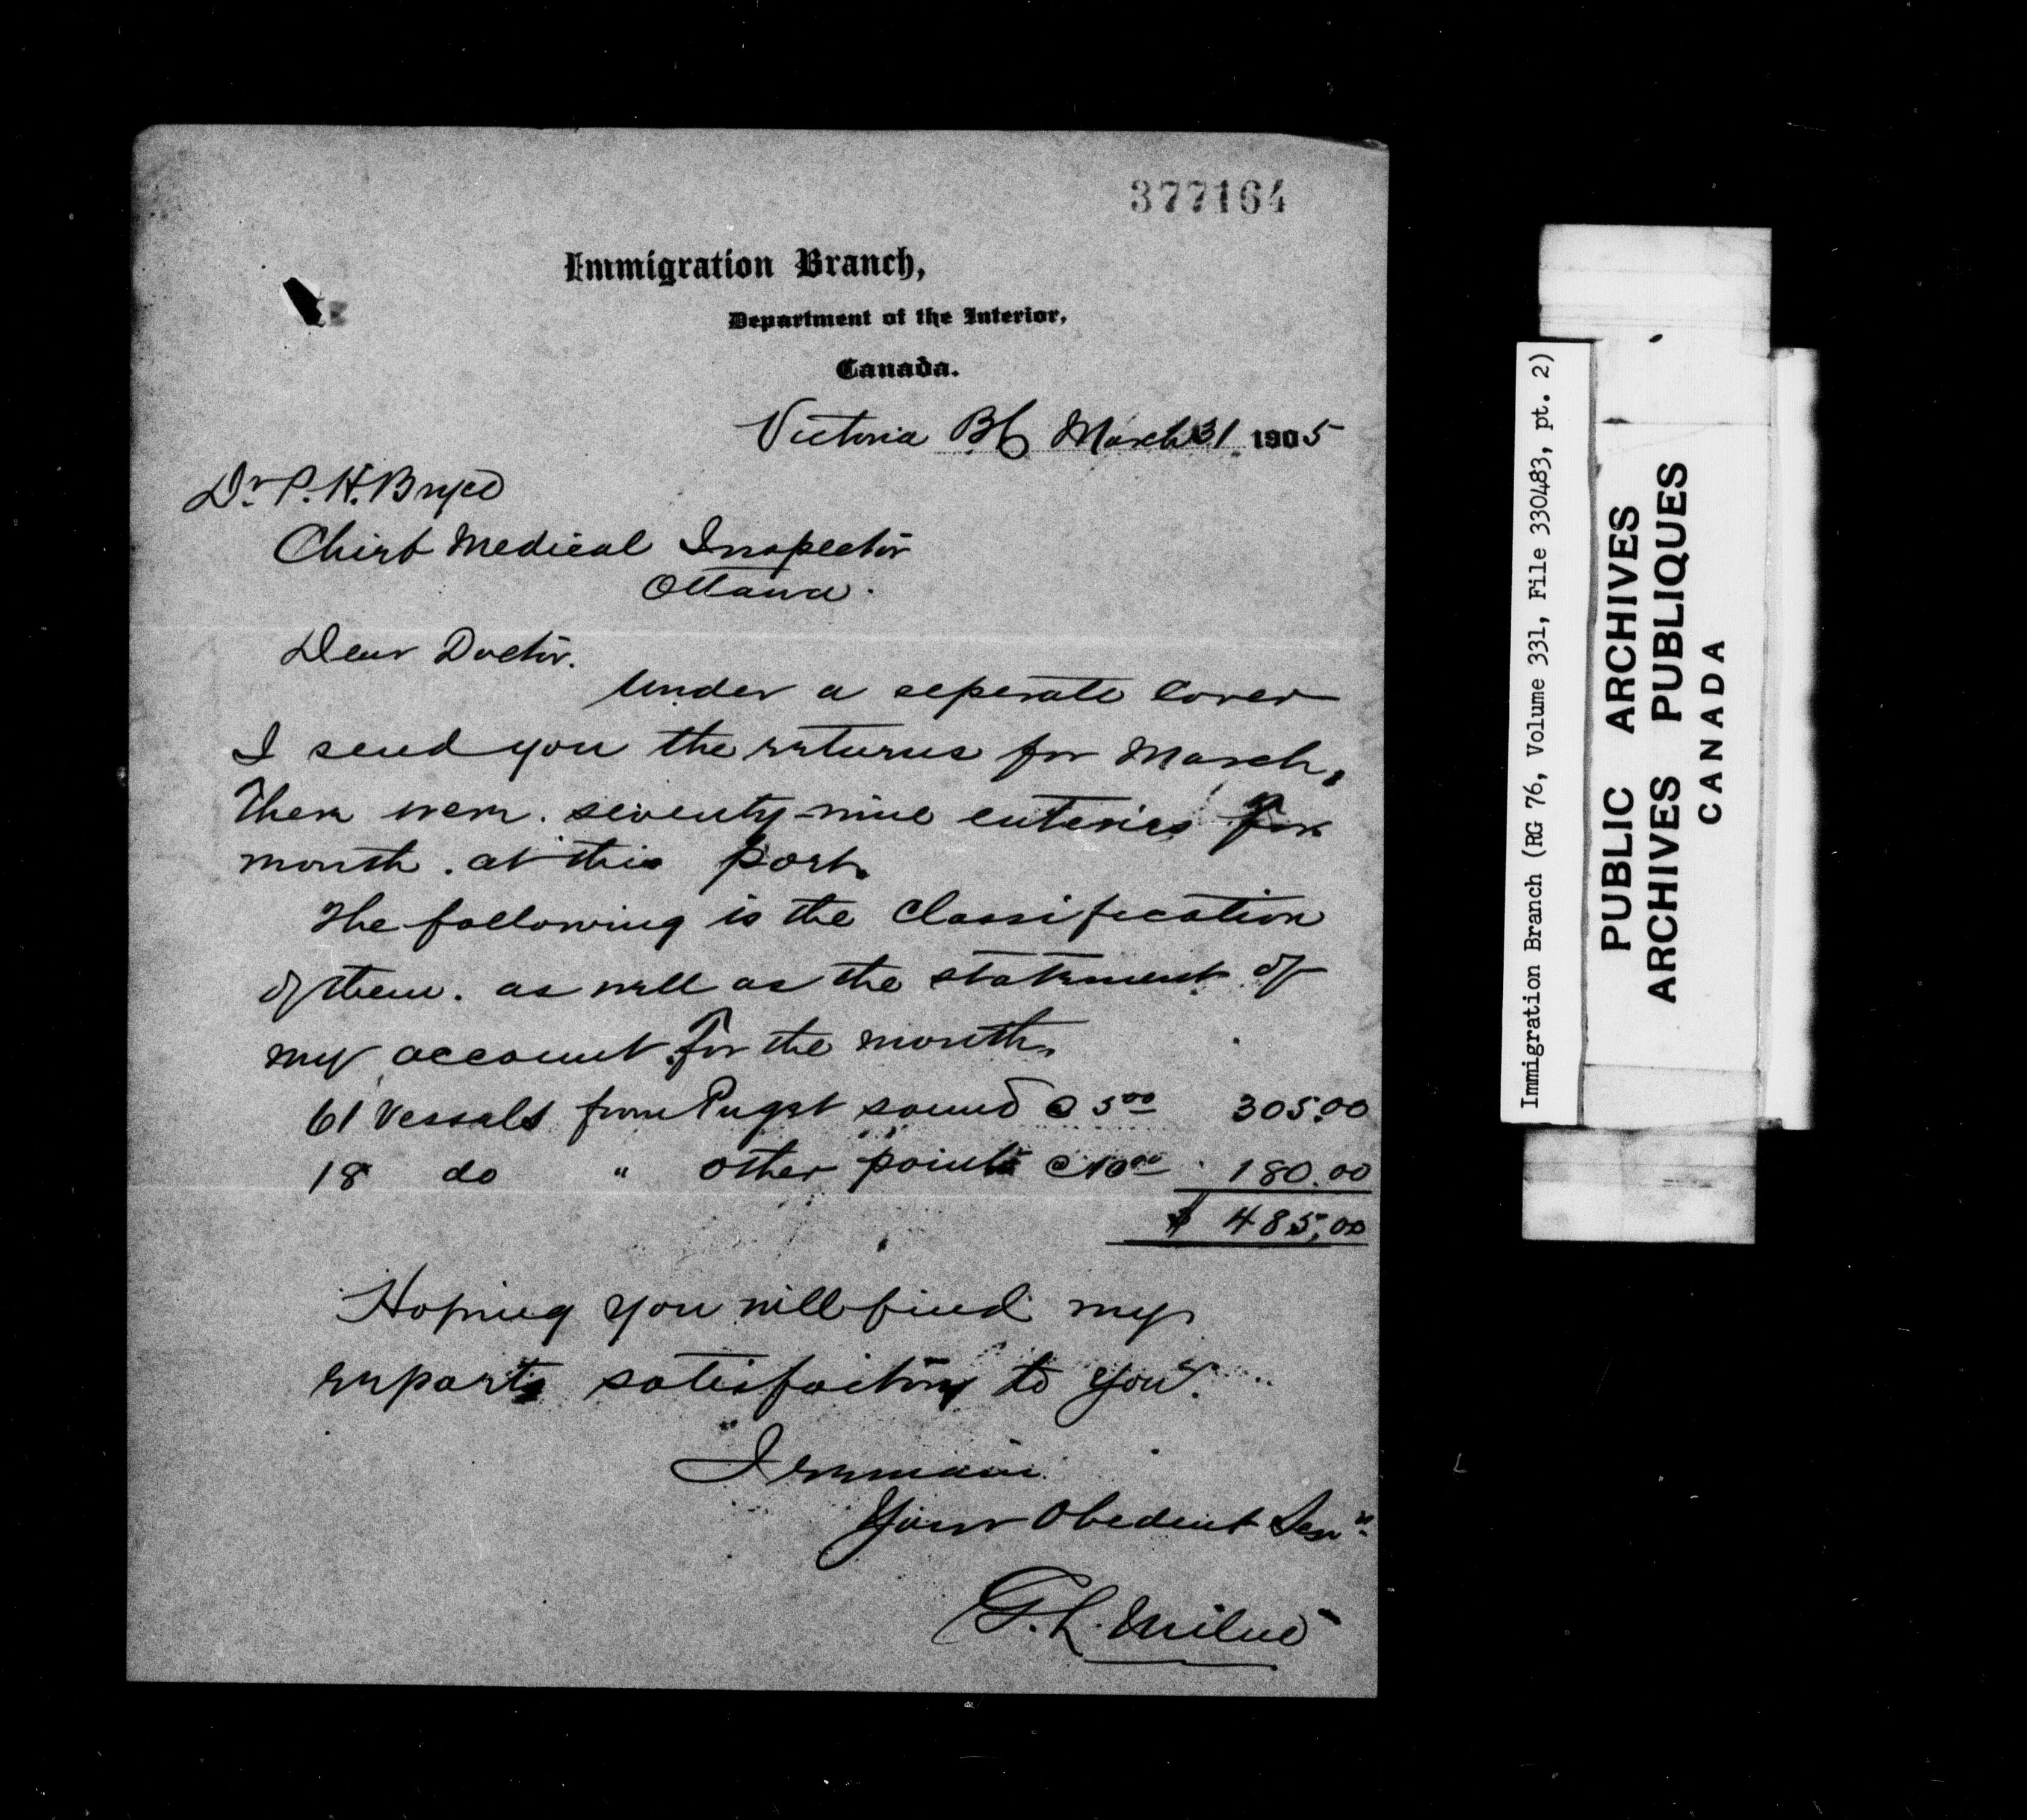 377164
Immigration Branch,
Department of the Interior,
Canada.
Victoria BC March 31 1905
Dr P. H. Bryce
Chief Medical Inspector
Ottawa.
Dear Doctor.
Under a seperate cover
I send you the returns for March,
There were. seventy-nine enteries for
month. at this port.
The following is the Classification
of them. as well as the statement of
my account for the month.
61 Vessels from Puget sound @ 5 00 305.00
18 do " other points @ 10 00 180.00
$ 485.00
Hoping you will find my
reports satisfactory to you.
I remain
Your Obedient Serv"
G. L. Milne
Immigration Branch (RG 76, Volume 331, File 330483, pt. 2)
PUBLIC ARCHIVES
ARCHIVES PUBLIQUES
CANADA